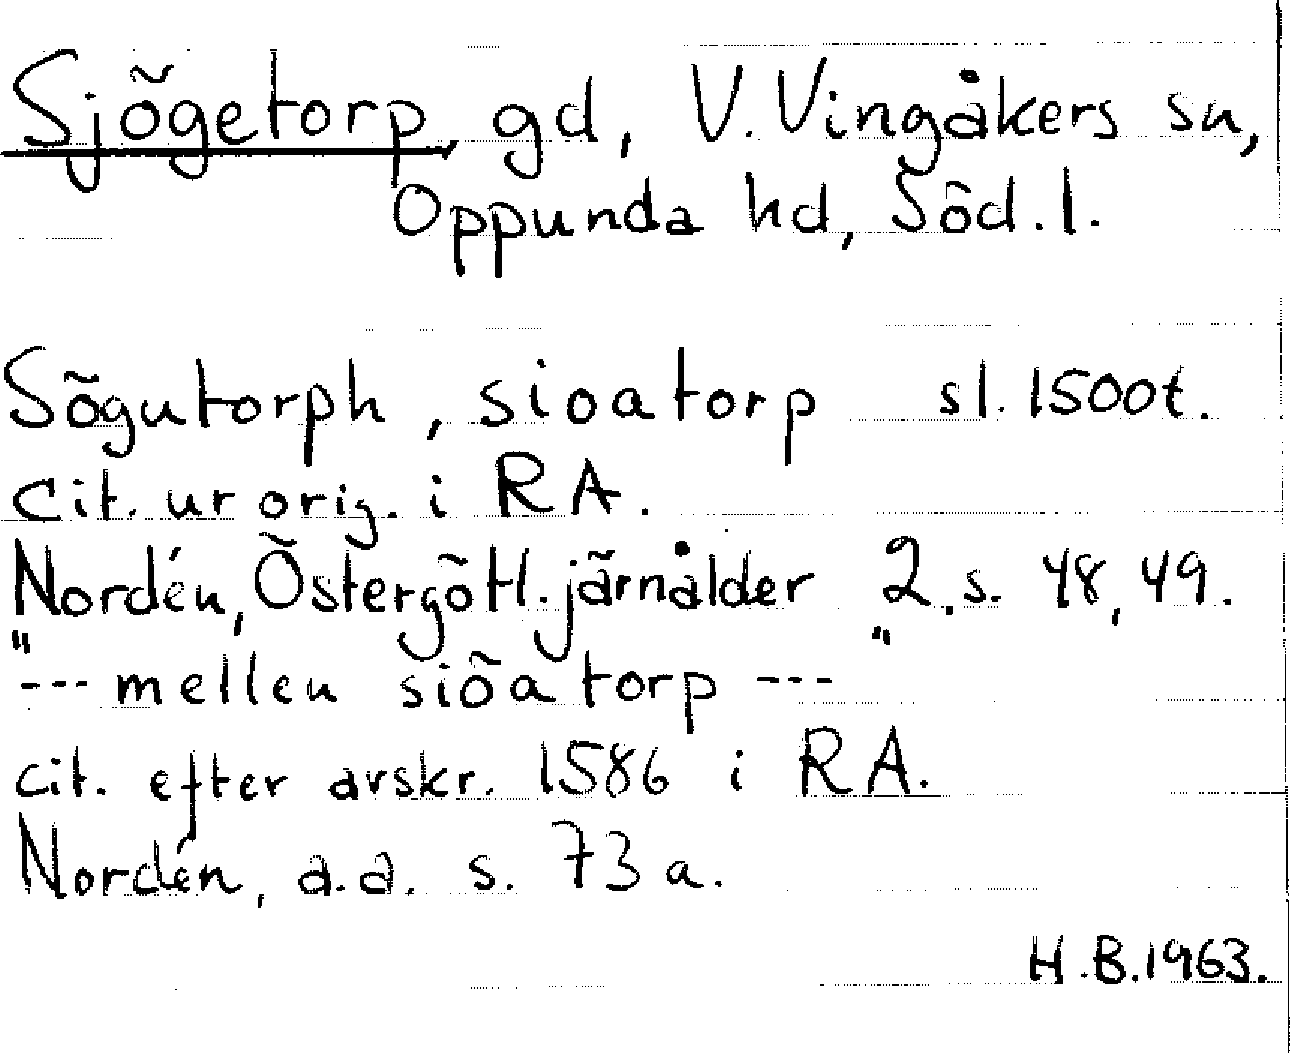 Sjögetorp, gd, V. Vingåkers sn,
Oppunda hd, Söd. l.
Sögutorph, sioatorp sl. 1500t.
Cit. ur orig. i RA.
Nordén, Östergötl. järnålder 2, s. 48, 49.
"--- mellen siöatorp ---"
cit. efter avskr. 1586 i RA.
Nordén, a.a. s. 73 a.
H.B. 1963.